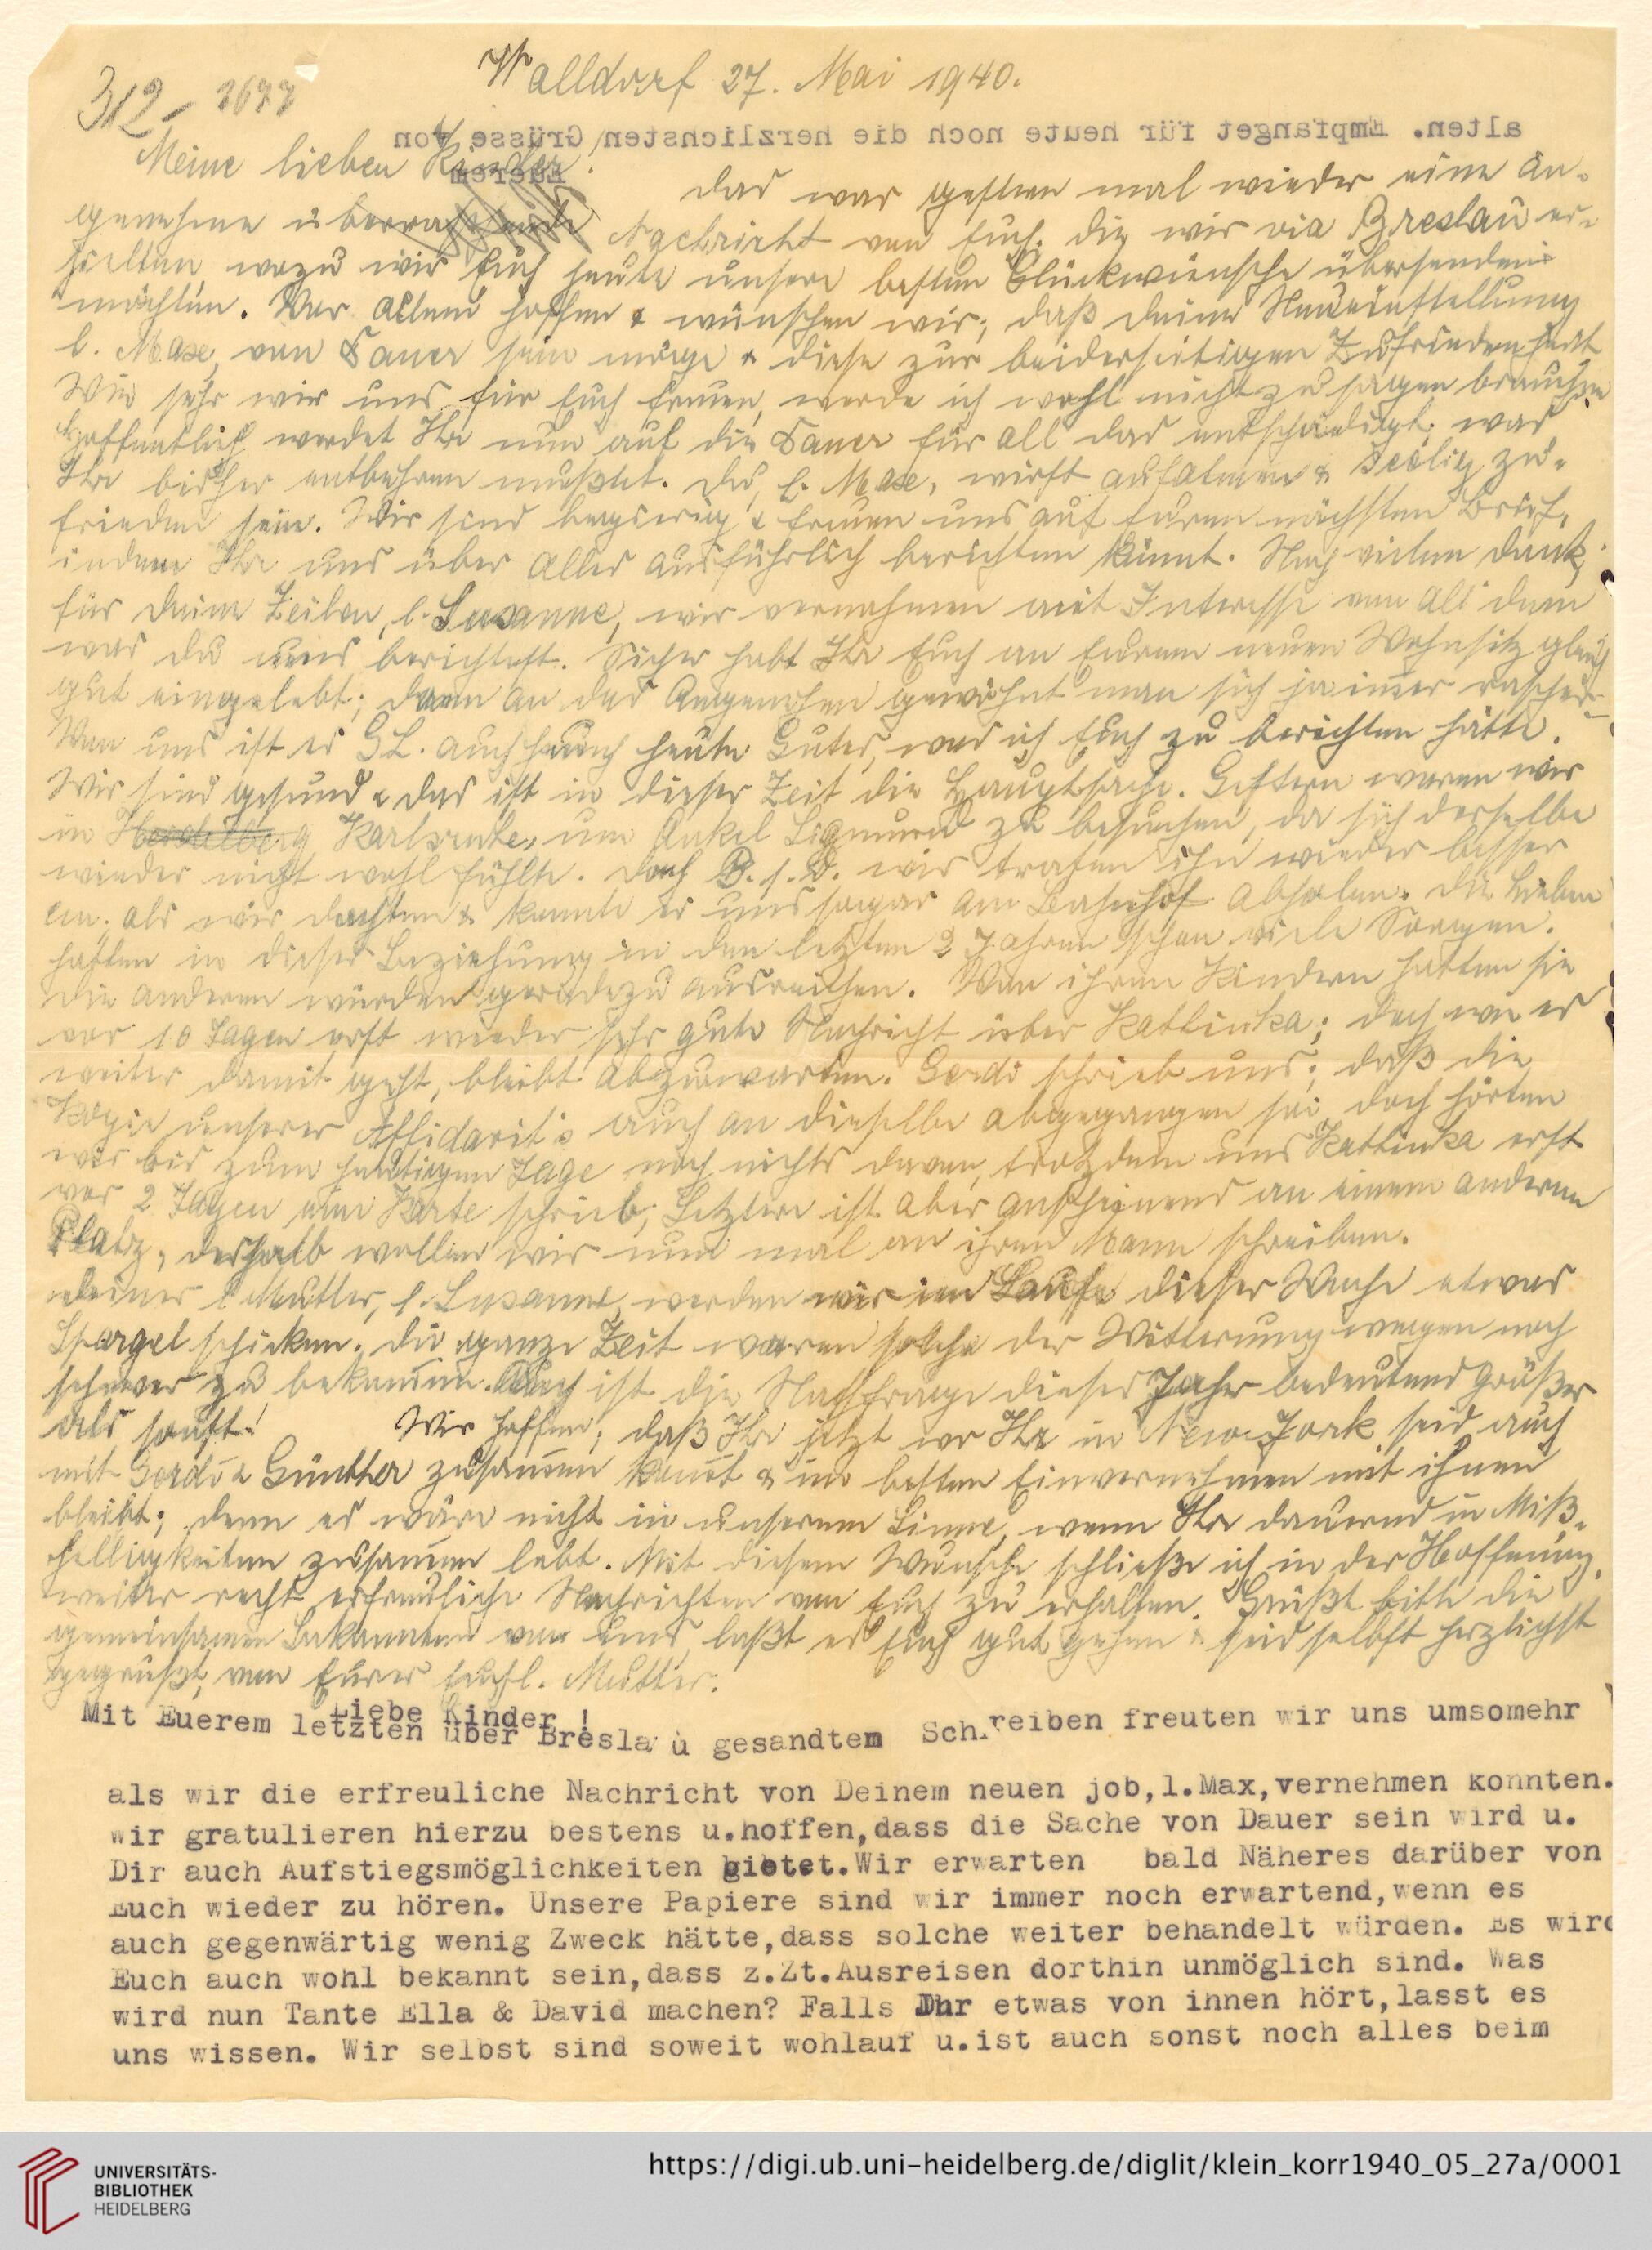 Walldorf 27. Mai 1940.
312 - 2677
alten. Empfanget für heute noch die herzlichsten Grüsse von
Euerem
Meine lieben Kinder!
das war gestern mal wieder eine an-
genehme überraschende Nachricht von Euch, die wir via Breslau er-
hielten wozu wir Euch heute unsere besten Glückwünsche übersenden
möchten. Vor allem hoffen & wünschen wir, daß deine Neueinstellung
l. Max, von Dauer sein möge & diese zur beiderseitigen Zufriedenheit
Wie sehr wir uns für Euch freuen, werde ich wohl nicht zu sagen brauchen
Hoffentlich werdet Ihr nun auf die Dauer für all das entschädigt, was
Ihr bisher entbehren mußtet. Du, l. Max, wirst aufatmen & seelig zu-
frieden sein. Wir sind begierig & freuen uns auf Euren nächsten Brief,
indem Ihr uns über alles ausführlich berichten könnt. Noch vielen Dank,
für deine Zeilen, l. Susanne, wir vernahmen mit Interesse von all dem
was du uns berichtest. Sicher habt Ihr Euch an Eurem neuen Wohnsitz gleich
gut eingelebt; denn an das Angenehme gewöhnt man sich ja immer rascher
Von uns ist es G.L. auch heute Gutes, was ich Euch zu berichten hätte.
Wir sind gesund & das ist in dieser Zeit die Hauptsache. Gestern waren wir
in Heidelberg Karlsruhe, um Onkel Sigmund zu besuchen, da sich derselbe
wieder nicht wohl fühlte. Doch G.s.D. wir trafen ihn wieder besser
an, als wir dachten & konnte er uns sogar am Bahnhof abholen. Die Lieben
hatten in dieser Beziehung in den letzten 2 Jahren schon viele Sorgen.
die anderen würden geradezu ausreichen. Von ihren Kindern hatten sie
vor 10 Tagen erst wieder sehr gute Nachricht über Katlinka; doch wie es
weiter damit geht, bleibt abzuwarten. Gerdi schrieb uns, daß die
Kopie unserer Affidavit's auch an dieselbe abgegangen sei, doch hörten
wir bis zum heutigen Tage noch nichts davon, trotzdem uns Katlinka erst
vor 2 Tagen eine Karte schrieb; Letztere ist aber anscheinend an einem anderen
Platz, deshalb wollen wir nun mal an ihren Mann schreiben.
Deiner l. Mutter, l. Susanne, werden wir im Laufe dieser Woche etwas
Spargel schicken; die ganze Zeit waren solche der Witterung wegen noch
schwer zu bekommen. Auch ist die Nachfrage dieses Jahr bedeutend größer
als sonst! Wir hoffen, daß Ihr jetzt wo Ihr in New-York seid auch
mit Gerdi & Günther zusammen kommt & im besten Einvernehmen mit ihnen
bleibt; denn es wäre nicht in unserem Sinne, wenn Ihr dauernd in Miß-
helligkeiten zusammen lebt. Mit diesem Wunsche schließe ich in der Hoffnung,
weiter recht erfreuliche Nachrichten von Euch zu erhalten. Grüßt bitte die
gemeinsamen Bekannten von uns laßt es Euch gut gehen & seid selbst herzlichst
gegrüßt, von Eurer Euchl. Mutter.
Liebe Kinder !
Mit Euerem letzten über Breslau gesandtem Schreiben freuten wir uns umsomehr
als wir die erfreuliche Nachricht von Deinem neuen job,l.Max,vernehmen konnten.
wir gratulieren hierzu bestens u.hoffen,dass die Sache von Dauer sein wird u.
Dir auch Aufstiegsmöglichkeiten bietet.Wir erwarten bald Näheres darüber von
Euch wieder zu hören. Unsere Papiere sind wir immer noch erwartend,wenn es
auch gegenwärtig wenig Zweck hätte,dass solche weiter behandelt würden. Es wird
Euch auch wohl bekannt sein,dass z.Zt.Ausreisen dorthin unmöglich sind. Was
wird nun Tante Ella & David machen? Falls Ihr etwas von ihnen hört,lasst es
uns wissen. Wir selbst sind soweit wohlauf u.ist auch sonst noch alles beim
UNIVERSITÄTS-
BIBLIOTHEK
HEIDELBERG
https://digi.ub.uni-heidelberg.de/diglit/klein_korr1940_05_27a/0001